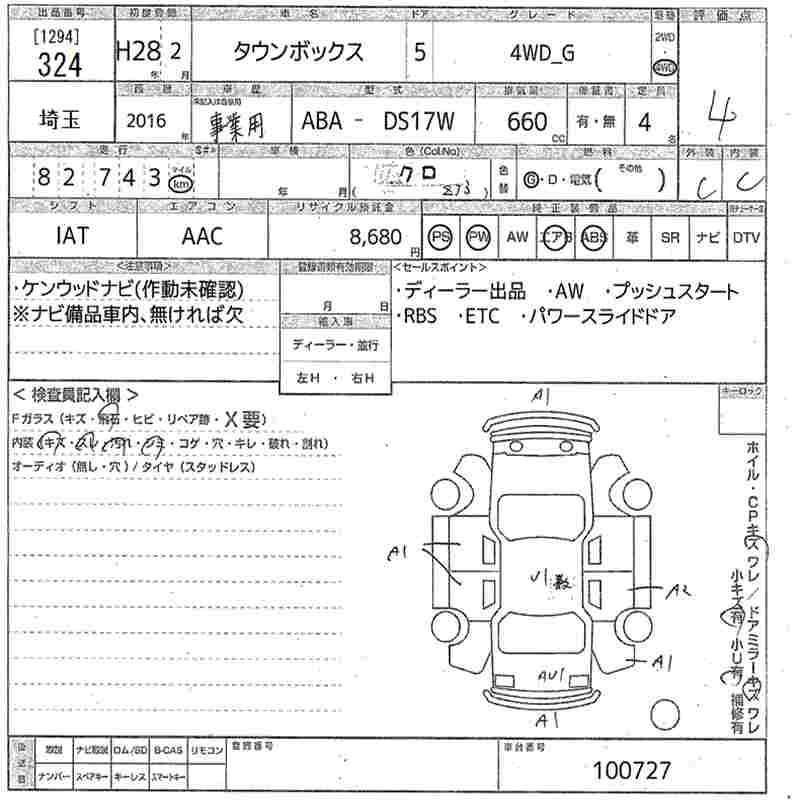 出品番号 初度登録 車名 ドア グレード 駆動 評価点
[1294]
324 H28年 2月 タウンボックス 5 4WD_G 2WD・4WD 4
埼玉 2016年 車歴 事業用 型式 ABA - DS17W 排気量 660cc 有・無 定員 4名
走行 車検 色(Col.No) 色替 燃料 外装 内装
82,743 マイル km 年 月 クロ ZJ3 G・D・電気( その他 ) C C
シフト エアコン リサイクル預託金 純正装備品
IAT AAC 8,680円 PS PW AW エアB ABS 革 SR ナビ DTV
<注意事項> 登録書類有効期限 <セールスポイント>
・ケンウッドナビ(作動未確認) 月 日 ・ディーラー出品 ・AW ・プッシュスタート
※ナビ備品車内、無ければ欠 輸入車 ・RBS ・ETC ・パワースライドドア
ディーラー・並行
左H ・ 右H
<検査員記入欄> キーロック
Fガラス (キズ・飛石・ヒビ・リペア跡・X要)
内装 (キズ・スレ・汚れ・シミ・コゲ・穴・キレ・破れ・割れ)
オーディオ (無し・穴) / タイヤ (スタッドレス)
A1
A1
U1 数
A2
AU1
A1
A1
ホイル・CPキズ ワレ / ドアミラーキズ ワレ
小キズ有 / 小U有 / 補修有
後送品 取説 ナビ取説 ロム/SD B-CAS リモコン 登録番号 車台番号
ナンバー スペアキー キーレス スマートキー 100727